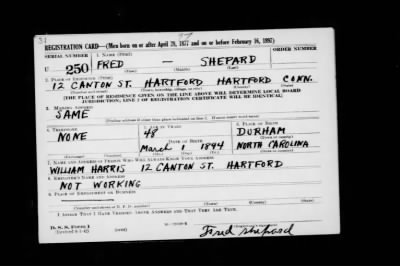 REGISTRATION CARD—(Men born on or after April 28, 1877 and on or before February 16, 1897)
SERIAL NUMBER
1. NAME (Print)
ORDER NUMBER
U 250
FRED — SHEPARD
(First) (Middle) (Last)
2. PLACE OF RESIDENCE (Print)
12 CANTON ST. HARTFORD HARTFORD CONN.
(Number and street) (Town, township, village, or city) (County) (State)
[THE PLACE OF RESIDENCE GIVEN ON THE LINE ABOVE WILL DETERMINE LOCAL BOARD
JURISDICTION; LINE 2 OF REGISTRATION CERTIFICATE WILL BE IDENTICAL]
3. MAILING ADDRESS
SAME
4. TELEPHONE
5. AGE IN YEARS
6. PLACE OF BIRTH
NONE
48
DURHAM
DATE OF BIRTH
(Town or county)
March 1 1894
NORTH CAROLINA
(Exchange) (Number)
(Mo.) (Day) (Yr.)
(State or country)
7. NAME AND ADDRESS OF PERSON WHO WILL ALWAYS KNOW YOUR ADDRESS
WILLIAM HARRIS 12 CANTON ST. HARTFORD
8. EMPLOYER'S NAME AND ADDRESS
NOT WORKING
9. PLACE OF EMPLOYMENT OR BUSINESS
(Number and street or R. F. D. number) (Town) (County) (State)
I AFFIRM THAT I HAVE VERIFIED ABOVE ANSWERS AND THAT THEY ARE TRUE.
D. S. S. Form 1
(Revised 4-1-42)
(over)
Fred Shepard